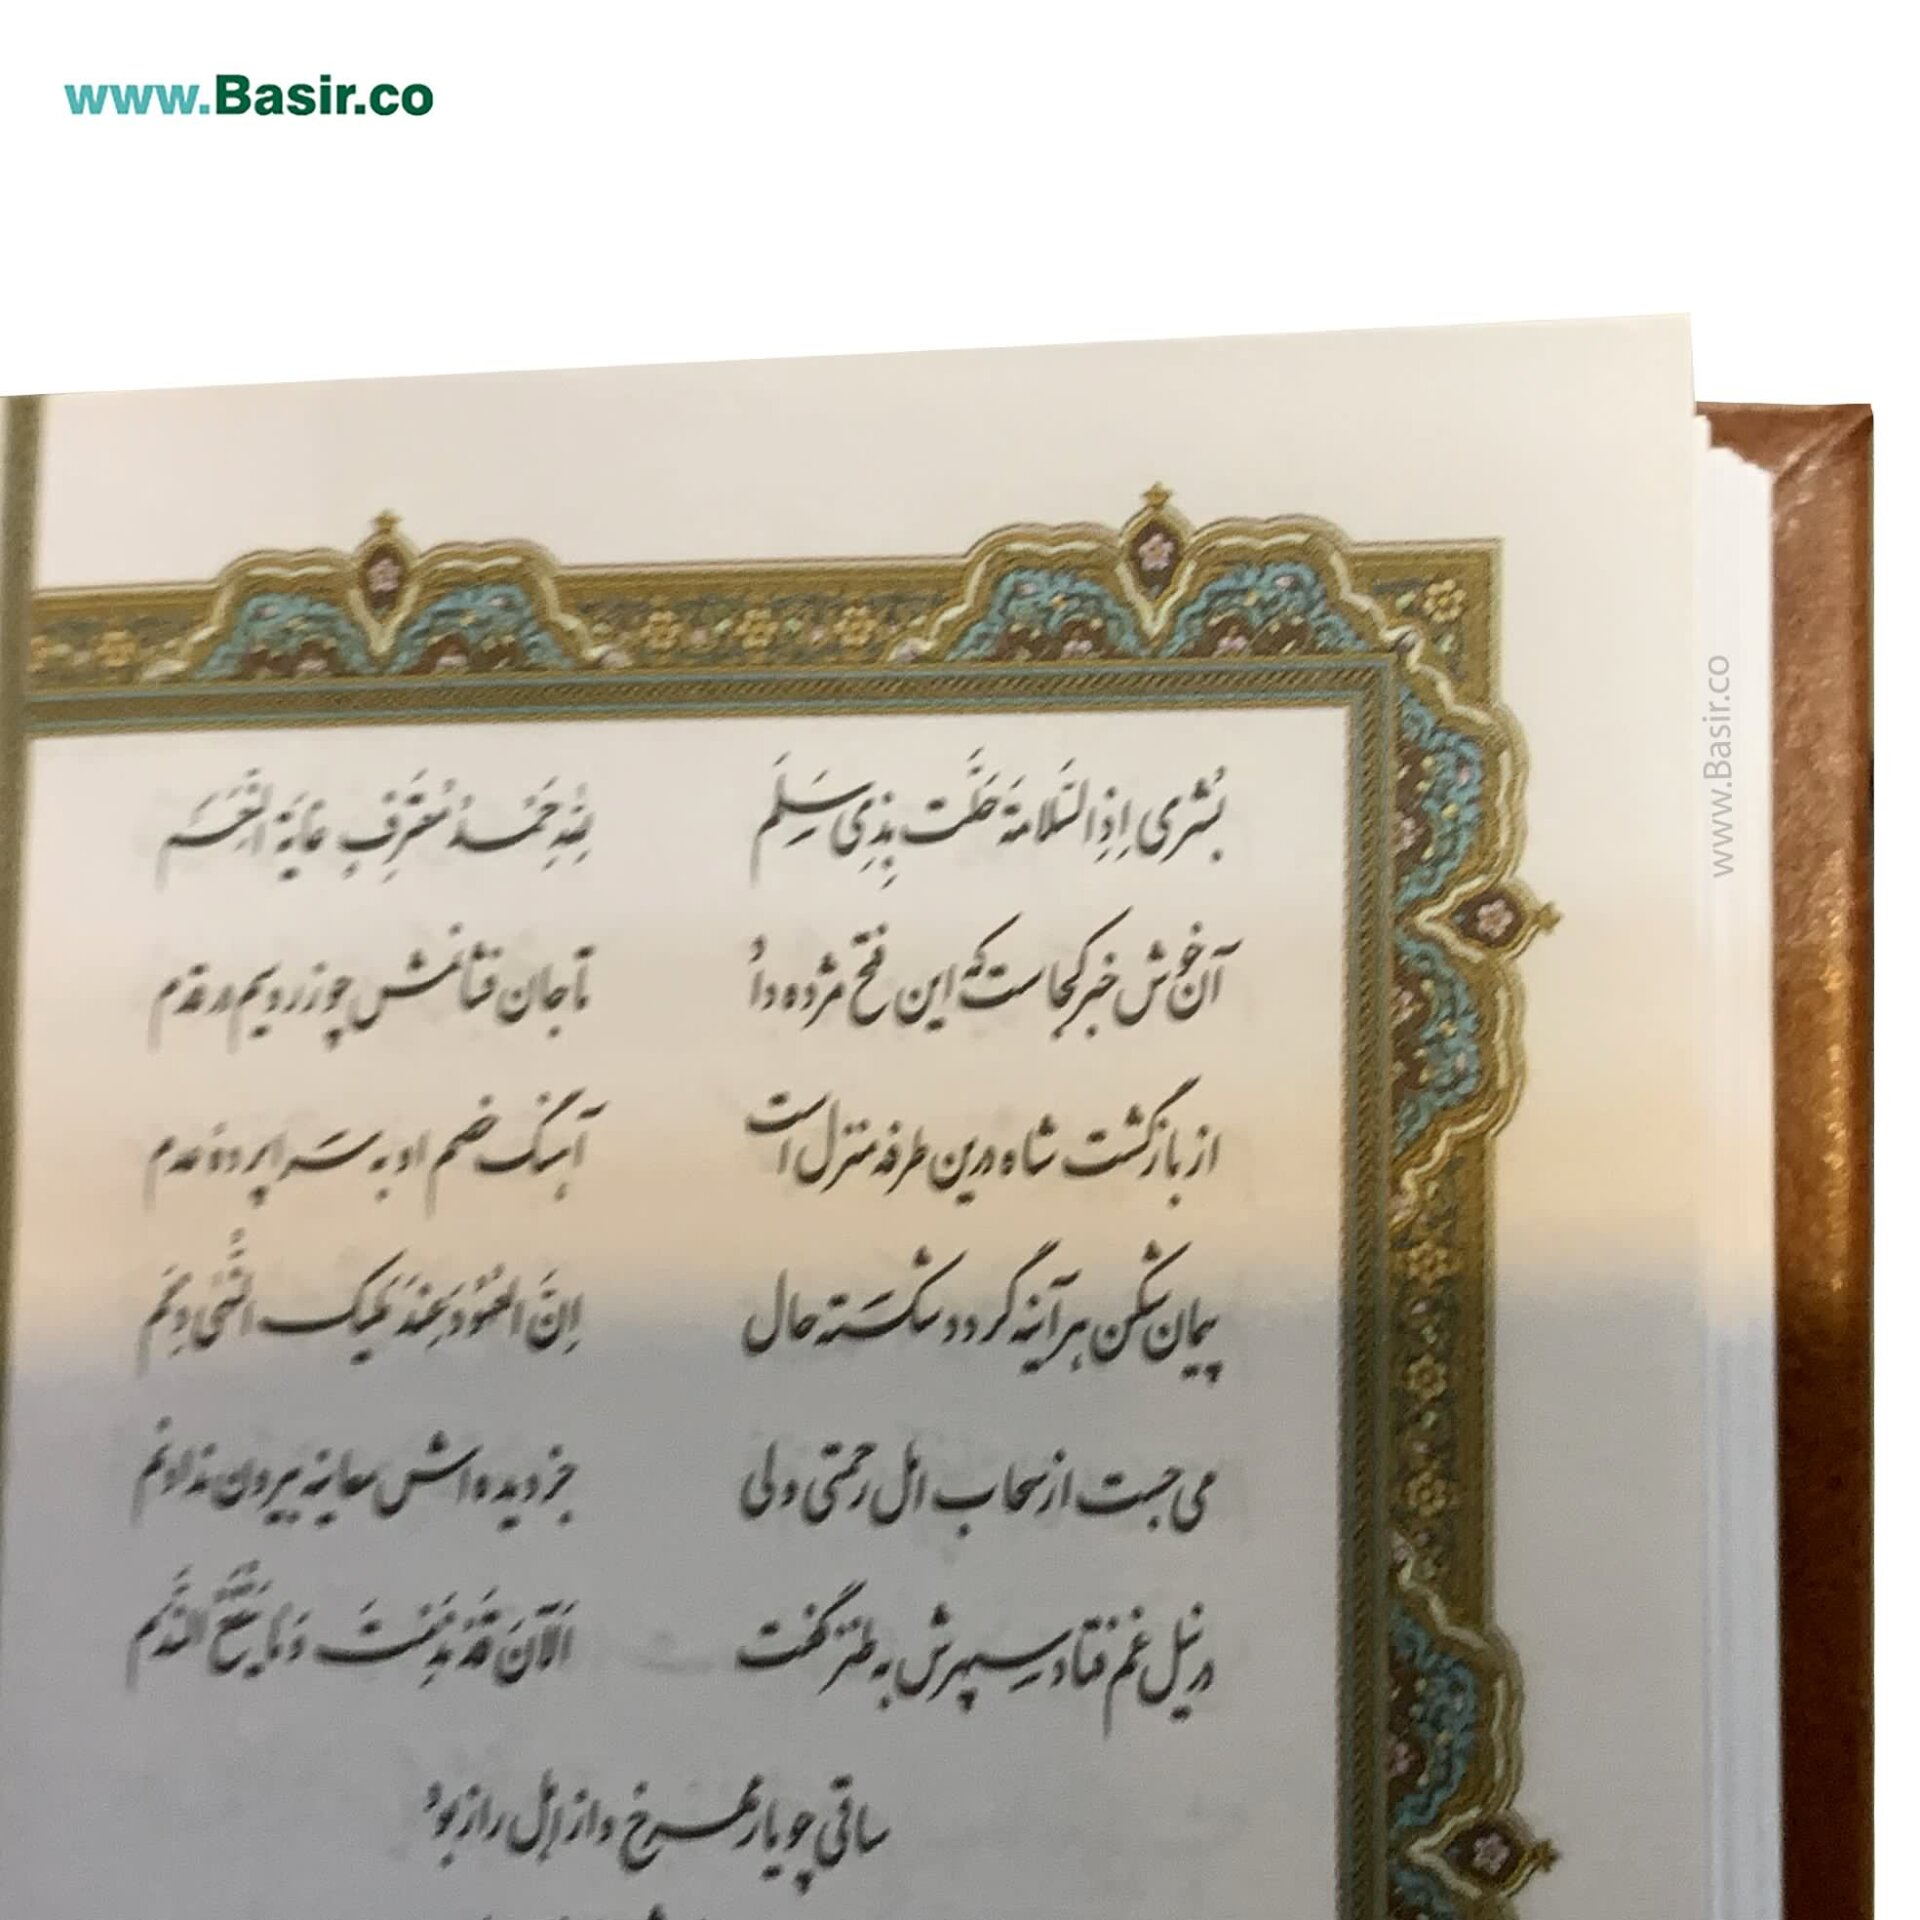 www.Basir.co
بُشری اِذِ السَّلامَة حَلَّت بِذِی سَلَم
لِلّهِ حَمدُ مُعتَرِفٍ غایَةَ النِّعَم
آن خوش خبر کجاست که این فتح مژده داد
تا جان فشانمش چو زر و سیم در قدم
از بازگشت شاه درین طرفه منزل است
آهنگ خصم او به سراپرده عدم
پیمان شکن هرآینه گردد شکسته حال
اِنَّ العُهُودَ عِندَ مَلیک النُّهی ذِمَم
می جست از سحاب امل رحمتی ولی
جز دیده اش معاینه بیرون نداد نم
در نیل غم فتاد سپهرش به طنز گفت
اَلآنَ قَد نَدِمتَ وَ ما یَنفَعُ النَّدَم
ساقی چو یار مهرخ و از اهل راز بود
www.Basir.co